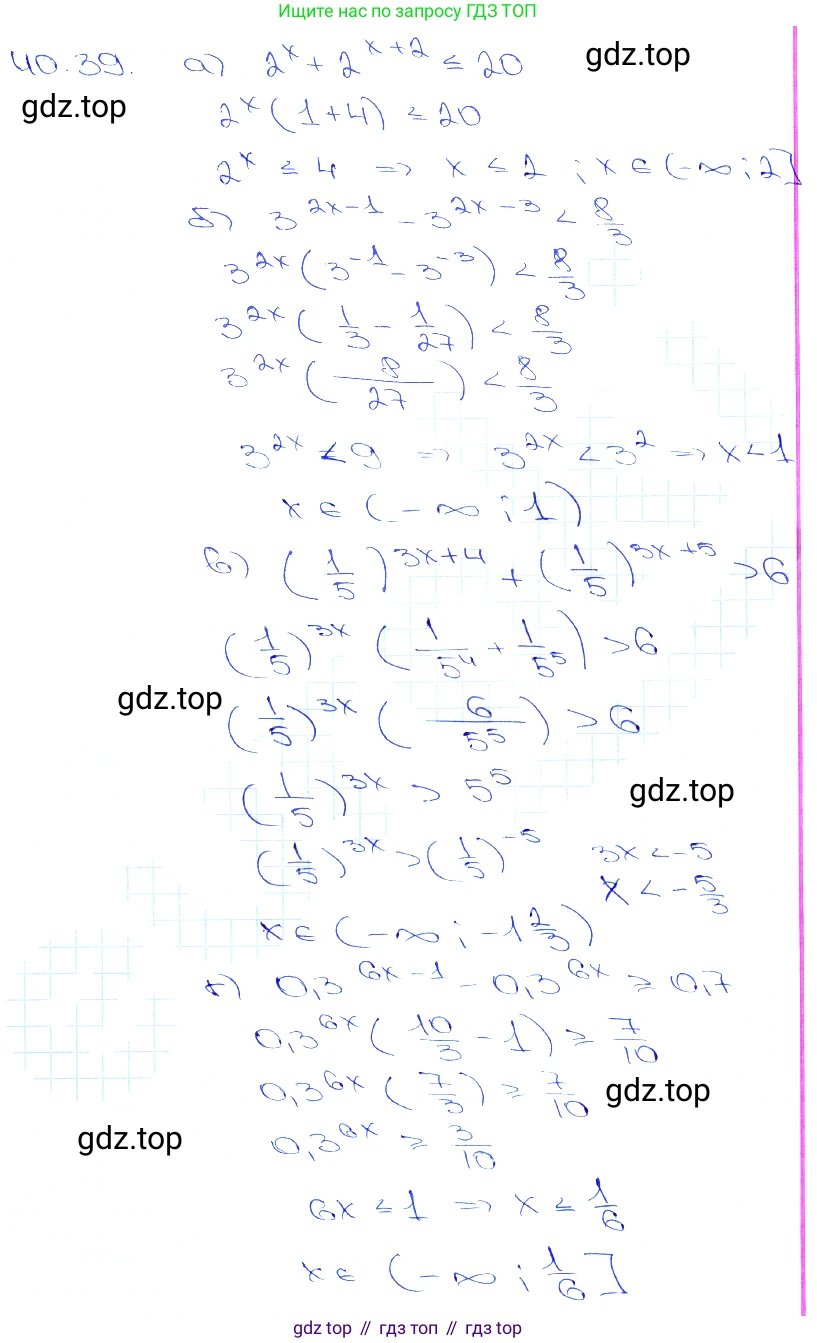 Ищите нас по запросу ГДЗ ТОП
40.39. а) 2^x + 2^(x+2) ≤ 20 gdz.top
gdz.top
2^x (1+4) ≤ 20
2^x ≤ 4 => x ≤ 2 ; x ∈ (-∞; 2]
б) 3^(2x-1) - 3^(2x-3) < 8/3
3^(2x) (3^(-1) - 3^(-3)) < 8/3
3^(2x) (1/3 - 1/27) < 8/3
3^(2x) (8/27) < 8/3
3^(2x) < 9 => 3^(2x) < 3^2 => x < 1
x ∈ (-∞; 1)
в) (1/5)^(3x+4) + (1/5)^(3x+5) > 6
(1/5)^(3x) (1/5^4 + 1/5^5) > 6
gdz.top
(1/5)^(3x) (6/5^5) > 6
(1/5)^(3x) > 5^5
gdz.top
(1/5)^(3x) > (1/5)^(-5) 3x < -5
x < -5/3
x ∈ (-∞; -1 2/3)
г) 0,3^(6x-1) - 0,3^(6x) ≥ 0,7
0,3^(6x) (10/3 - 1) ≥ 7/10
0,3^(6x) (7/3) ≥ 7/10 gdz.top
gdz.top
0,3^(6x) ≥ 3/10
6x ≤ 1 => x ≤ 1/6
x ∈ (-∞; 1/6]
gdz.top // гдз топ // гдз top